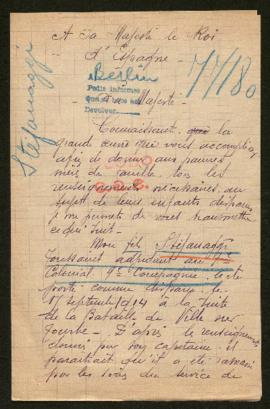 A Sa Majesté le Roi
d'Espagne
77/80
Berlin
Pedir informes
Devolver.
Sire Majesté
Stéfanaggi
Connaissant la
grande œuvre que vous accomplissez
afin de donner aux pauvres
mères de famille tous les
renseignements nécessaires au
sujet de leurs enfants disparus
je me permets de vous transmettre
ce qui suit.
Mon fils Stéfanaggi
Toussaint adjudant au
Colonial 9e Compagnie a été
porté comme disparu le
septembre 1914 à la suite
de la Bataille de Ville sur
Tourbe. D'après le renseignement
donné par son capitaine il
paraîtrait qu'il a été
par les soins du service de